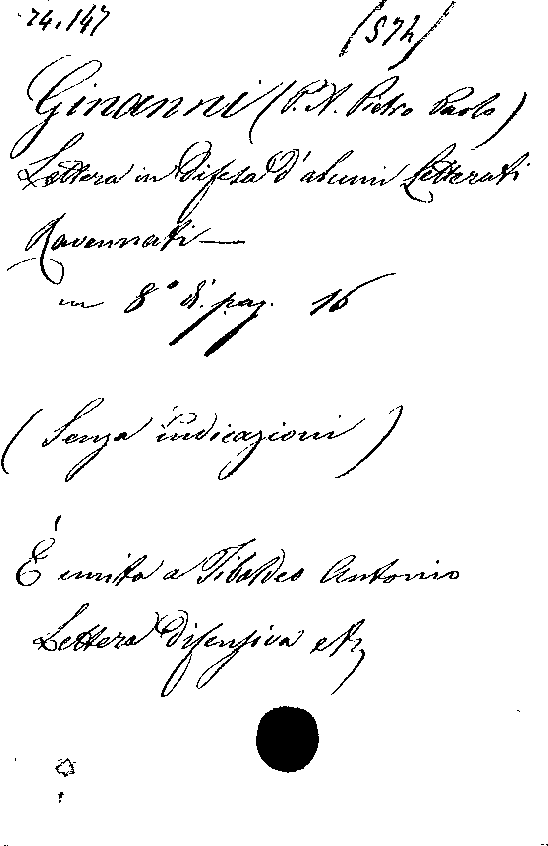 74.147 (S7h)
Ginanni (P. A. Pietro Paolo)
Lettera in difesa d'alcuni Letterati
Ravennati —
in 8° di pag. 16
(Senza indicazioni)
È unita a Tibaldeo Antonio
Lettera difensiva etc